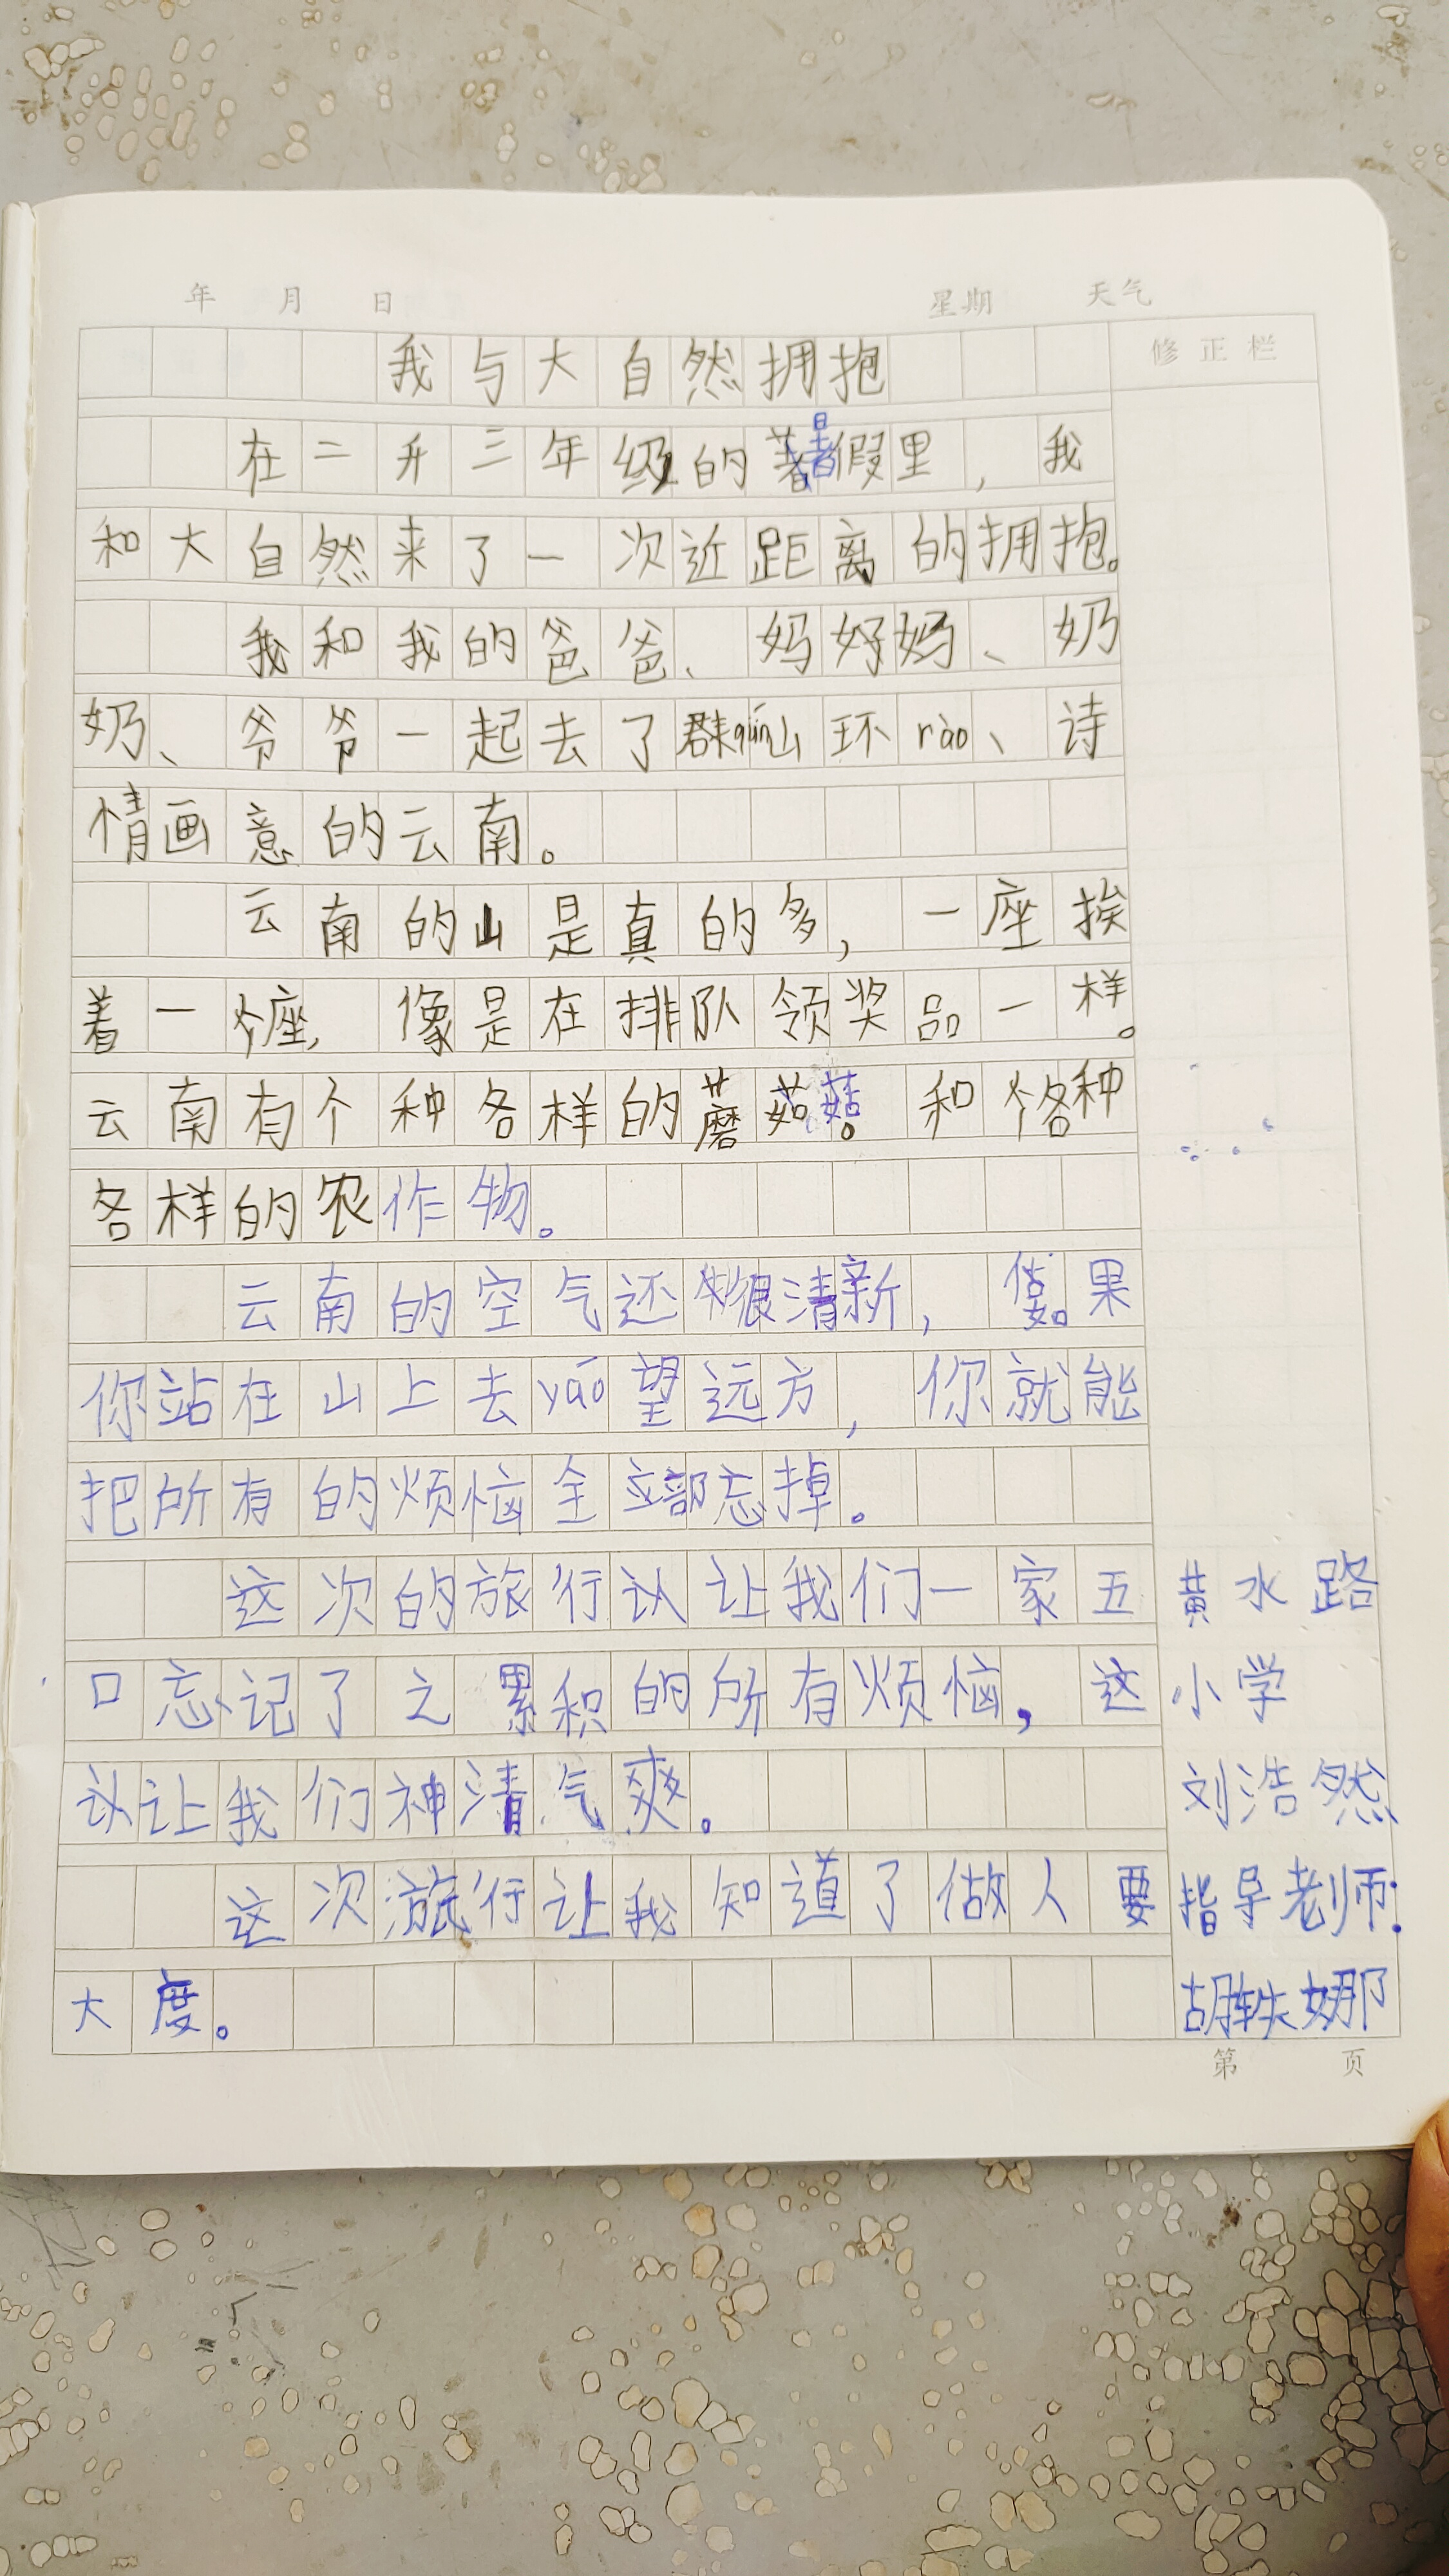 年 月 日 星期 天气
修正栏
我与大自然拥抱
在二升三年级的暑假里，我
和大自然来了一次近距离的拥抱。
我和我的爸爸、妈妈、奶
奶、爷爷一起去了群qún山环rào、诗
情画意的云南。
云南的山是真的多，一座挨
着一座，像是在排队领奖品一样。
云南有个种各样的蘑菇。和各种
各样的农作物。
云南的空气还很清新，如果
你站在山上去yáo望远方，你就能
把所有的烦恼全部忘掉。
这次的旅行让我们一家五
口忘记了之累积的所有烦恼，这
让我们神清气爽。
这次旅行让我知道了做人要
大度。
黄水路
小学
刘浩然
指导老师：
胡轶娜
第 页